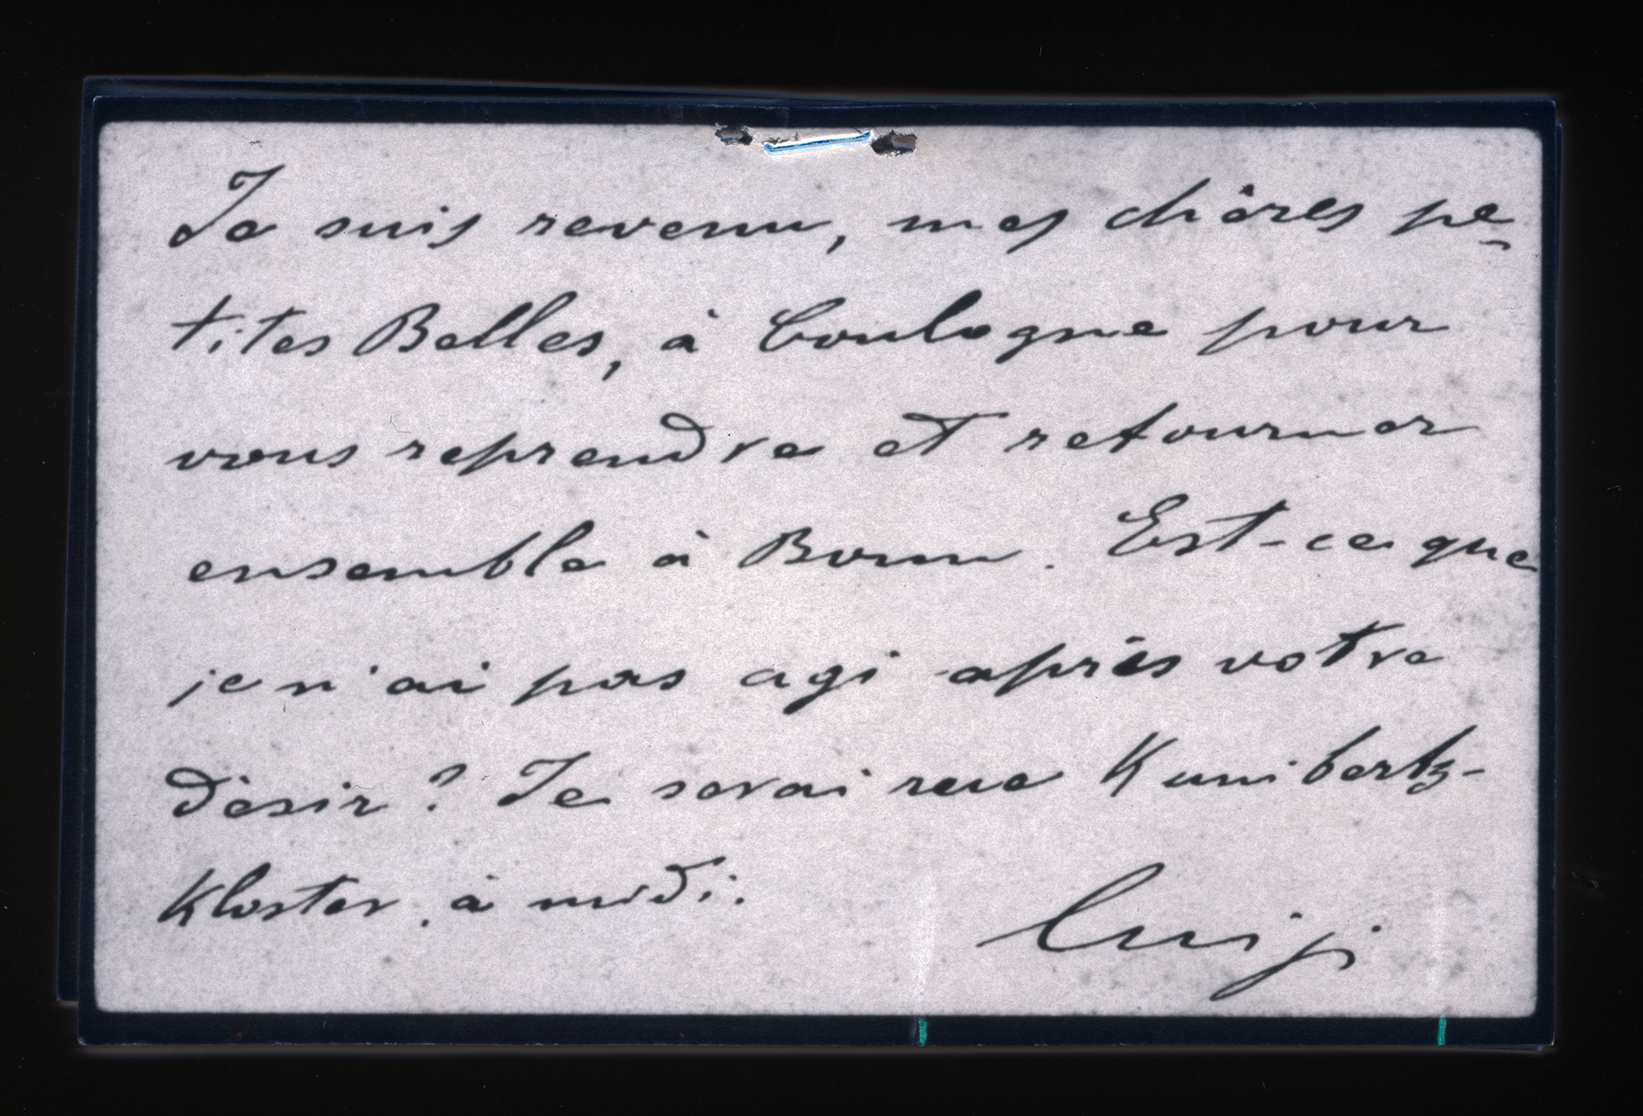 Je suis revenu, mes chères pe-
tites Belles, à Coulogne pour
vous reprendre et retourner
ensemble à Bonn. Est-ce que
je n'ai pas agi après votre
dèsir? Je serai rue Kunibertz-
Kloster, à midi.
Luigi